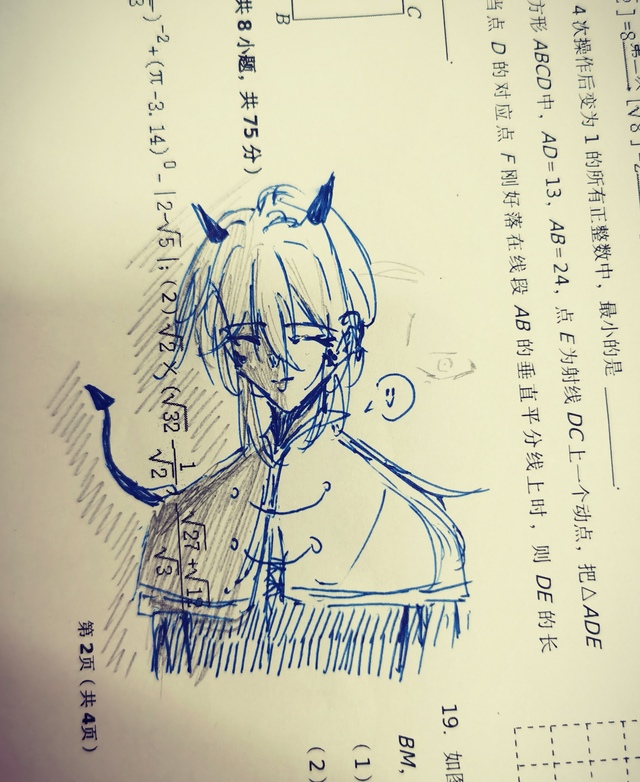 ]=8 第二次 [√8]=2
4 次操作后变为 1 的所有正整数中，最小的是
方形 ABCD 中，AD=13，AB=24，点 E 为射线 DC 上一个动点，把△ADE
当点 D 的对应点 F 刚好落在线段 AB 的垂直平分线上时，则 DE 的长
C
B
共 8 小题，共 75 分）
)⁻²+(π-3.14)⁰-|2-√5|；(2)√2×(√32-1/√2)
√27+√1
√3
19. 如图
BM,
(1)
(2)
第 2 页（共 4 页）